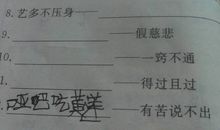 8. 艺多不压身——
9. ——假慈悲
10. ——一窍不通
1. ——得过且过
哑吧吃黄羊——有苦说不出